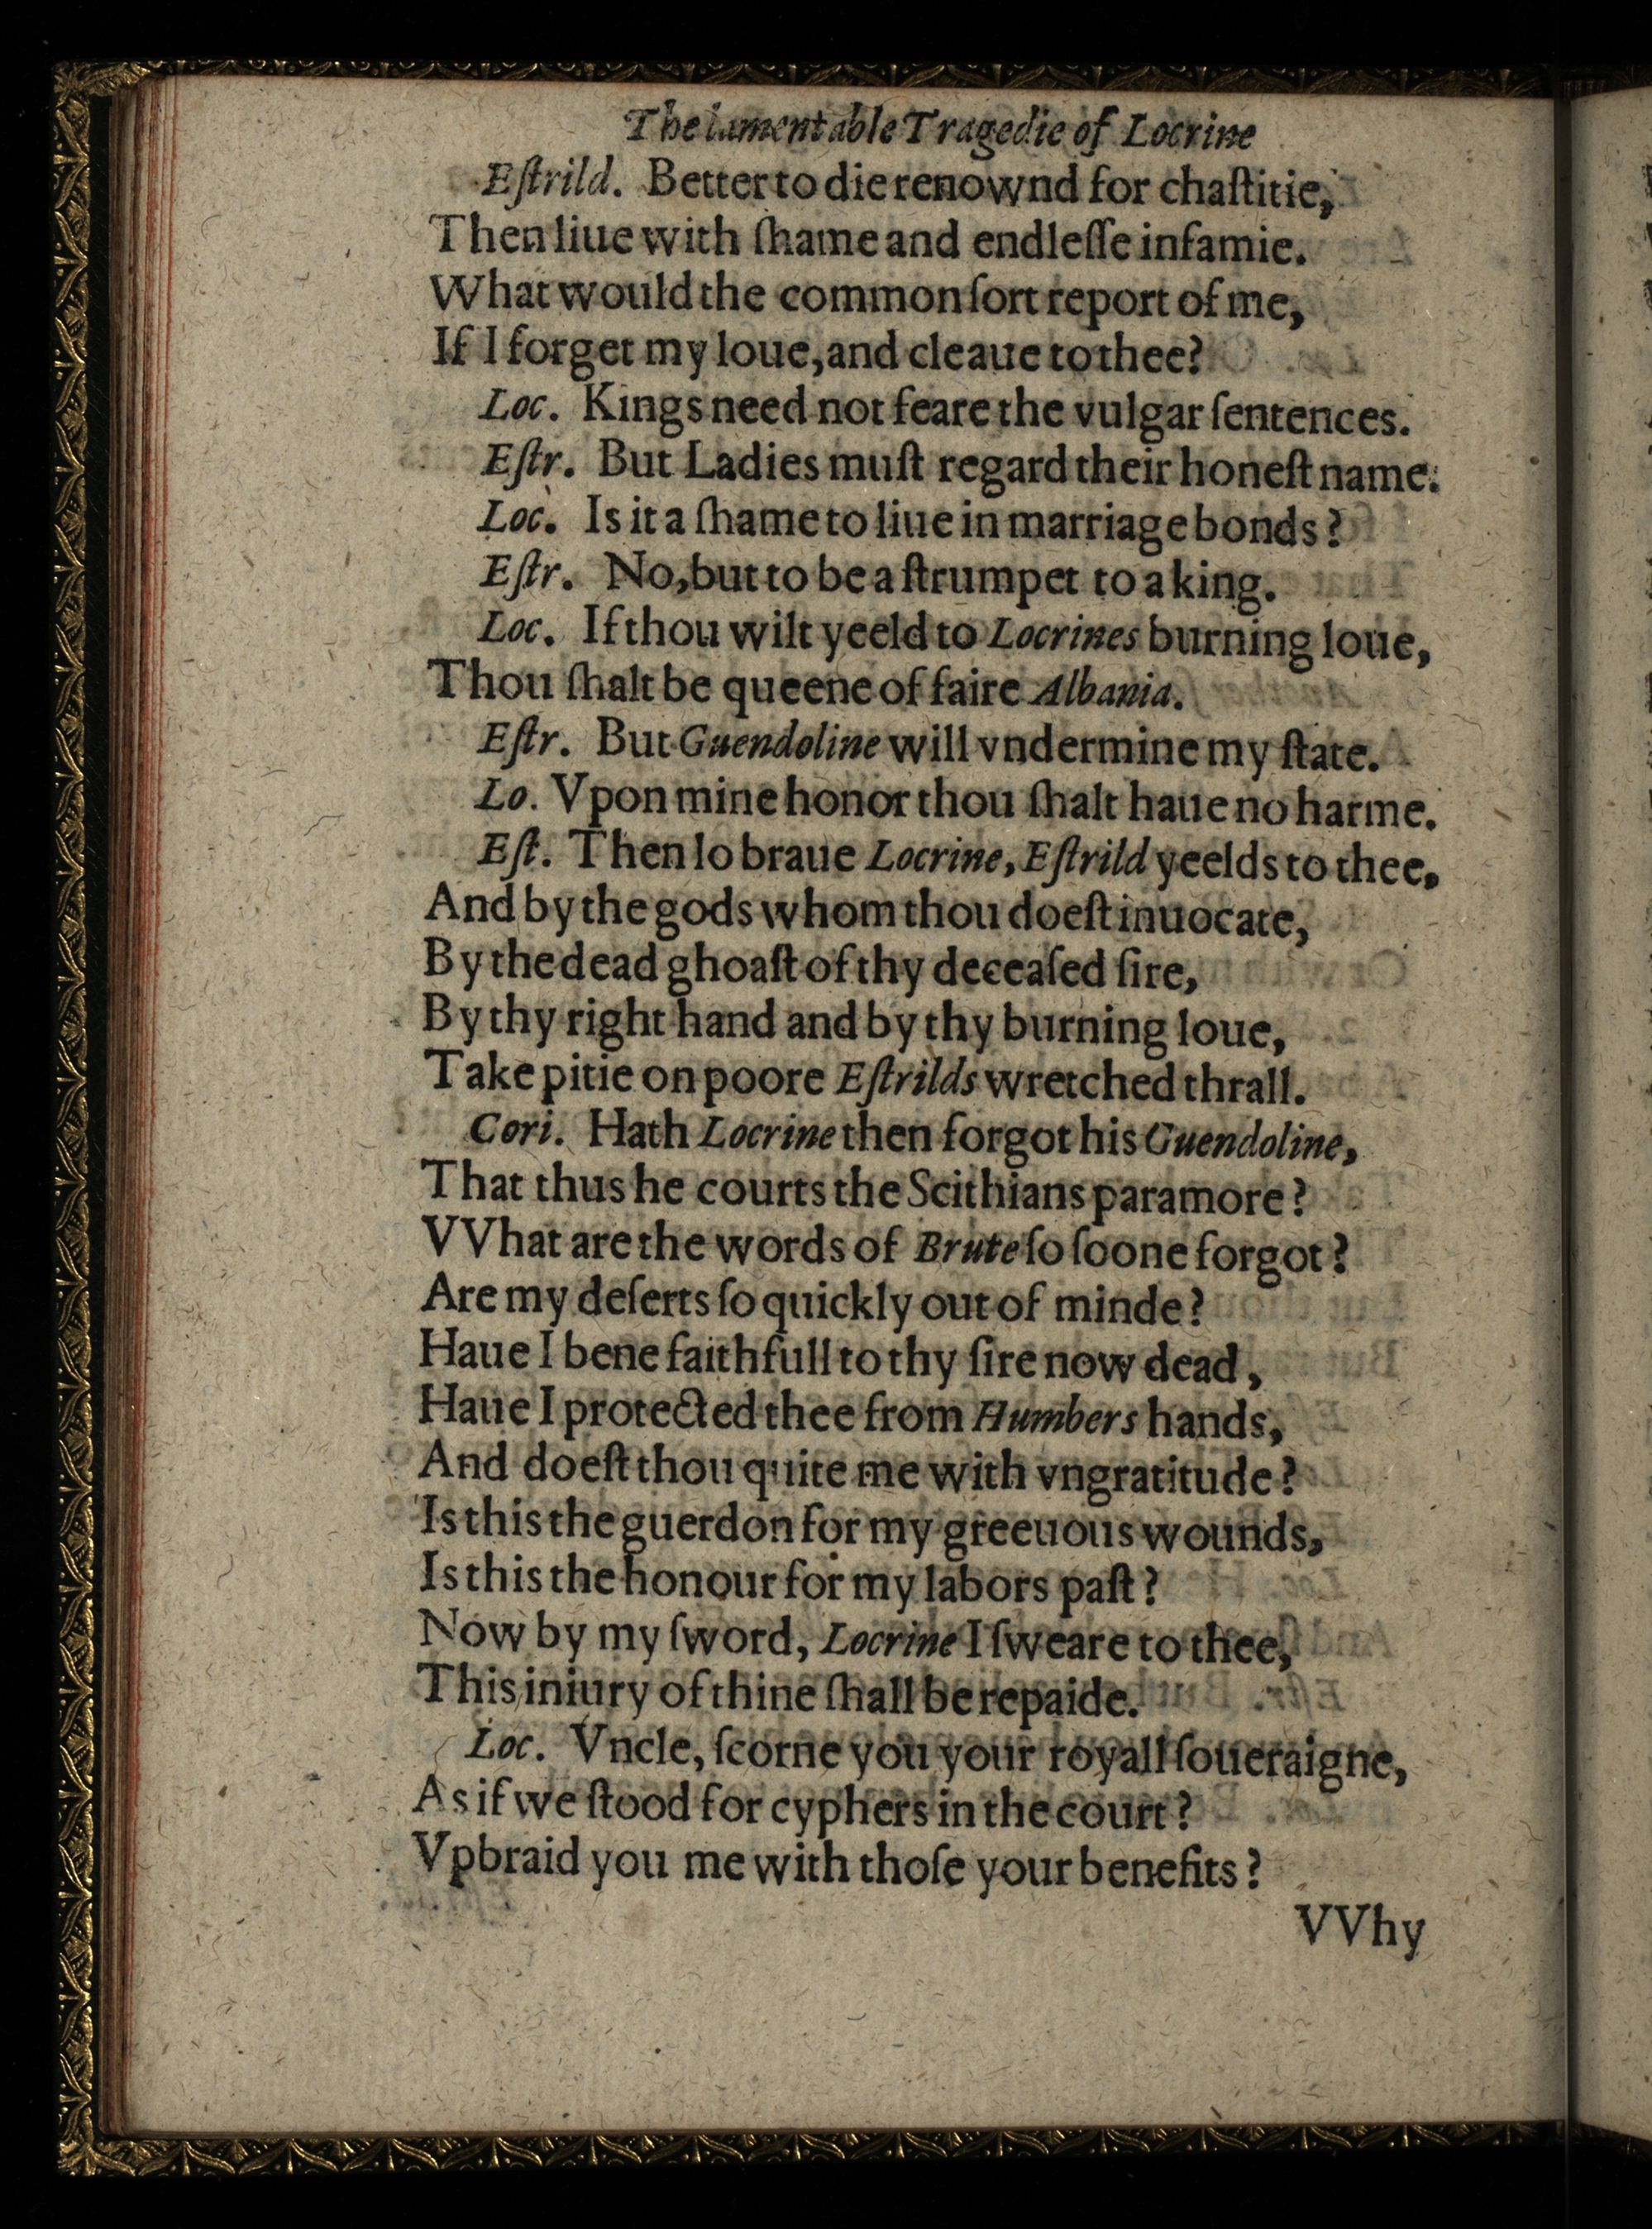 The lamentable Tragedie of Locrine
Eſtrild. Better to die renownd for chaſtitie,
Then liue with ſhame and endleſſe infamie.
What would the common ſort report of me,
If I forget my loue, and cleaue to thee?
Loc. Kings need not feare the vulgar ſentences.
Eſtr. But Ladies muſt regard their honeſt name.
Loc. Is it a ſhame to liue in marriage bonds?
Eſtr. No, but to be a ſtrumpet to a king.
Loc. If thou wilt yeeld to Locrines burning loue,
Thou ſhalt be queene of faire Albania.
Eſtr. But Guendoline will vndermine my ſtate.
Lo. Vpon mine honor thou ſhalt haue no harme.
Eſt. Then lo braue Locrine, Eſtrild yeelds to thee,
And by the gods whom thou doeſt inuocate,
By the dead ghoaſt of thy deceaſed ſire,
By thy right hand and by thy burning loue,
Take pitie on poore Eſtrilds wretched thrall.
Cori. Hath Locrine then forgot his Guendoline,
That thus he courts the Scithians paramore?
VVhat are the words of Brute ſo ſoone forgot?
Are my deſerts ſo quickly out of minde?
Haue I bene faithfull to thy ſire now dead,
Haue I protected thee from Humbers hands,
And doeſt thou quite me with vngratitude?
Is this the guerdon for my greeuous wounds,
Is this the honour for my labors paſt?
Now by my ſword, Locrine I ſweare to thee,
This iniury of thine ſhall be repaide.
Loc. Vncle, ſcorne you your royall ſoueraigne,
As if we ſtood for cyphers in the court?
Vpbraid you me with thoſe your benefits?
VVhy